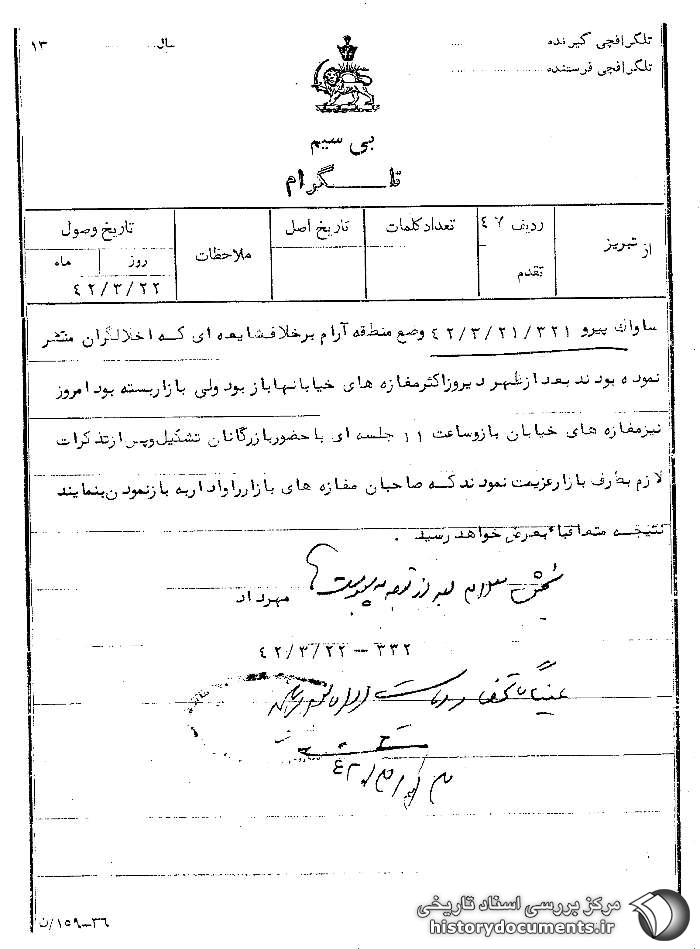 تلگرافچی گیرنده .... سال ........ ۱۳
تلگرافچی فرستنده ....
بی سیم
تلگرام
از تبریز
ردیف ۴۷
تقدم
تعداد کلمات
تاریخ اصل
ملاحظات
تاریخ وصول
روز ماه
۴۲/۳/۲۲
ساواك پیرو ۴۲/۳/۲۱/۳۲۱ وضع منطقه آرام برخلاف شایعه ای که اخلالگران منتشر
نموده بودند بعد از ظهر دیروز اکثر مغازه های خیابانها باز بود ولی بازار بسته بود امروز
نیز مغازه های خیابان باز و ساعت ۱۱ جلسه ای با حضور بازرگانان تشکیل و پس از تذکرات
لازم بطرف بازار عزیمت نمودند که صاحبان مغازه های بازار را وادار به باز نمودن بنمایند
نتیجه متعاقباً بعرض خواهد رسید .
مهرداد
۳۳۲ - ۴۲/۳/۲۲
۳۶-۱۵۹/ن
مرکز بررسی اسناد تاریخی
historydocuments.ir